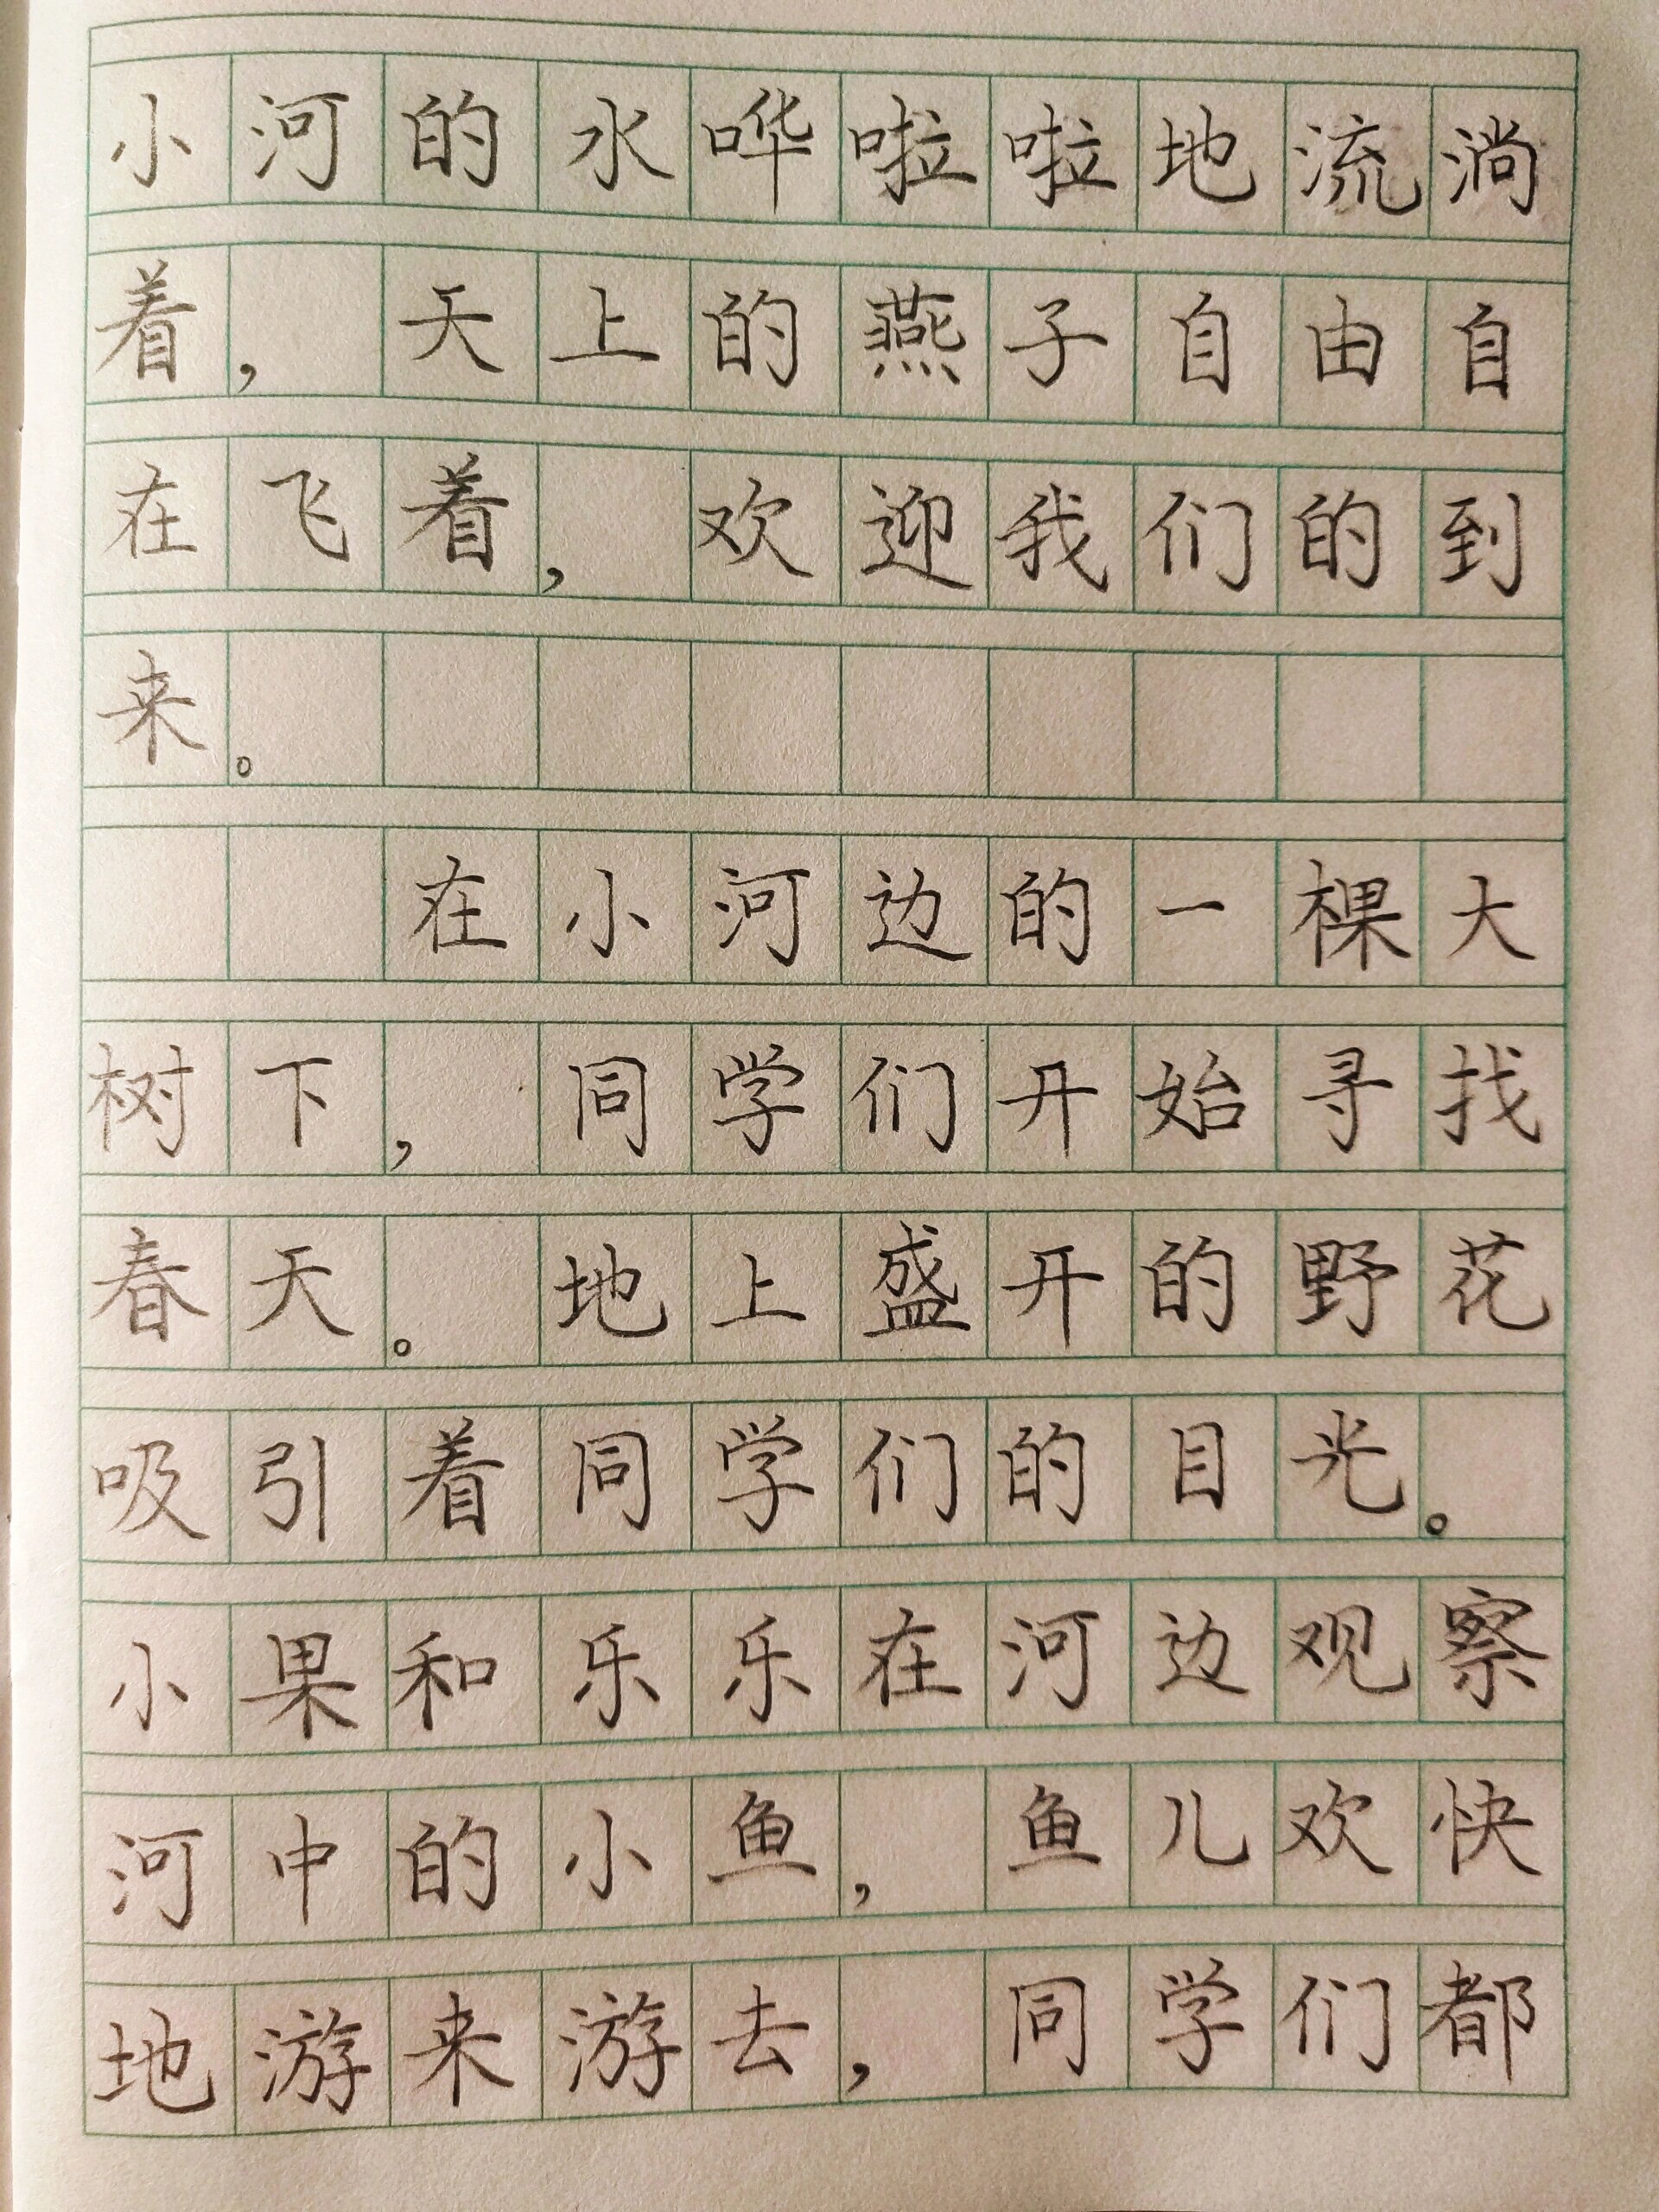 小河的水哗啦啦地流淌
着，天上的燕子自由自
在飞着，欢迎我们的到
来。
在小河边的一棵大
树下，同学们开始寻找
春天。地上盛开的野花
吸引着同学们的目光。
小果和乐乐在河边观察
河中的小鱼，鱼儿欢快
地游来游去，同学们都